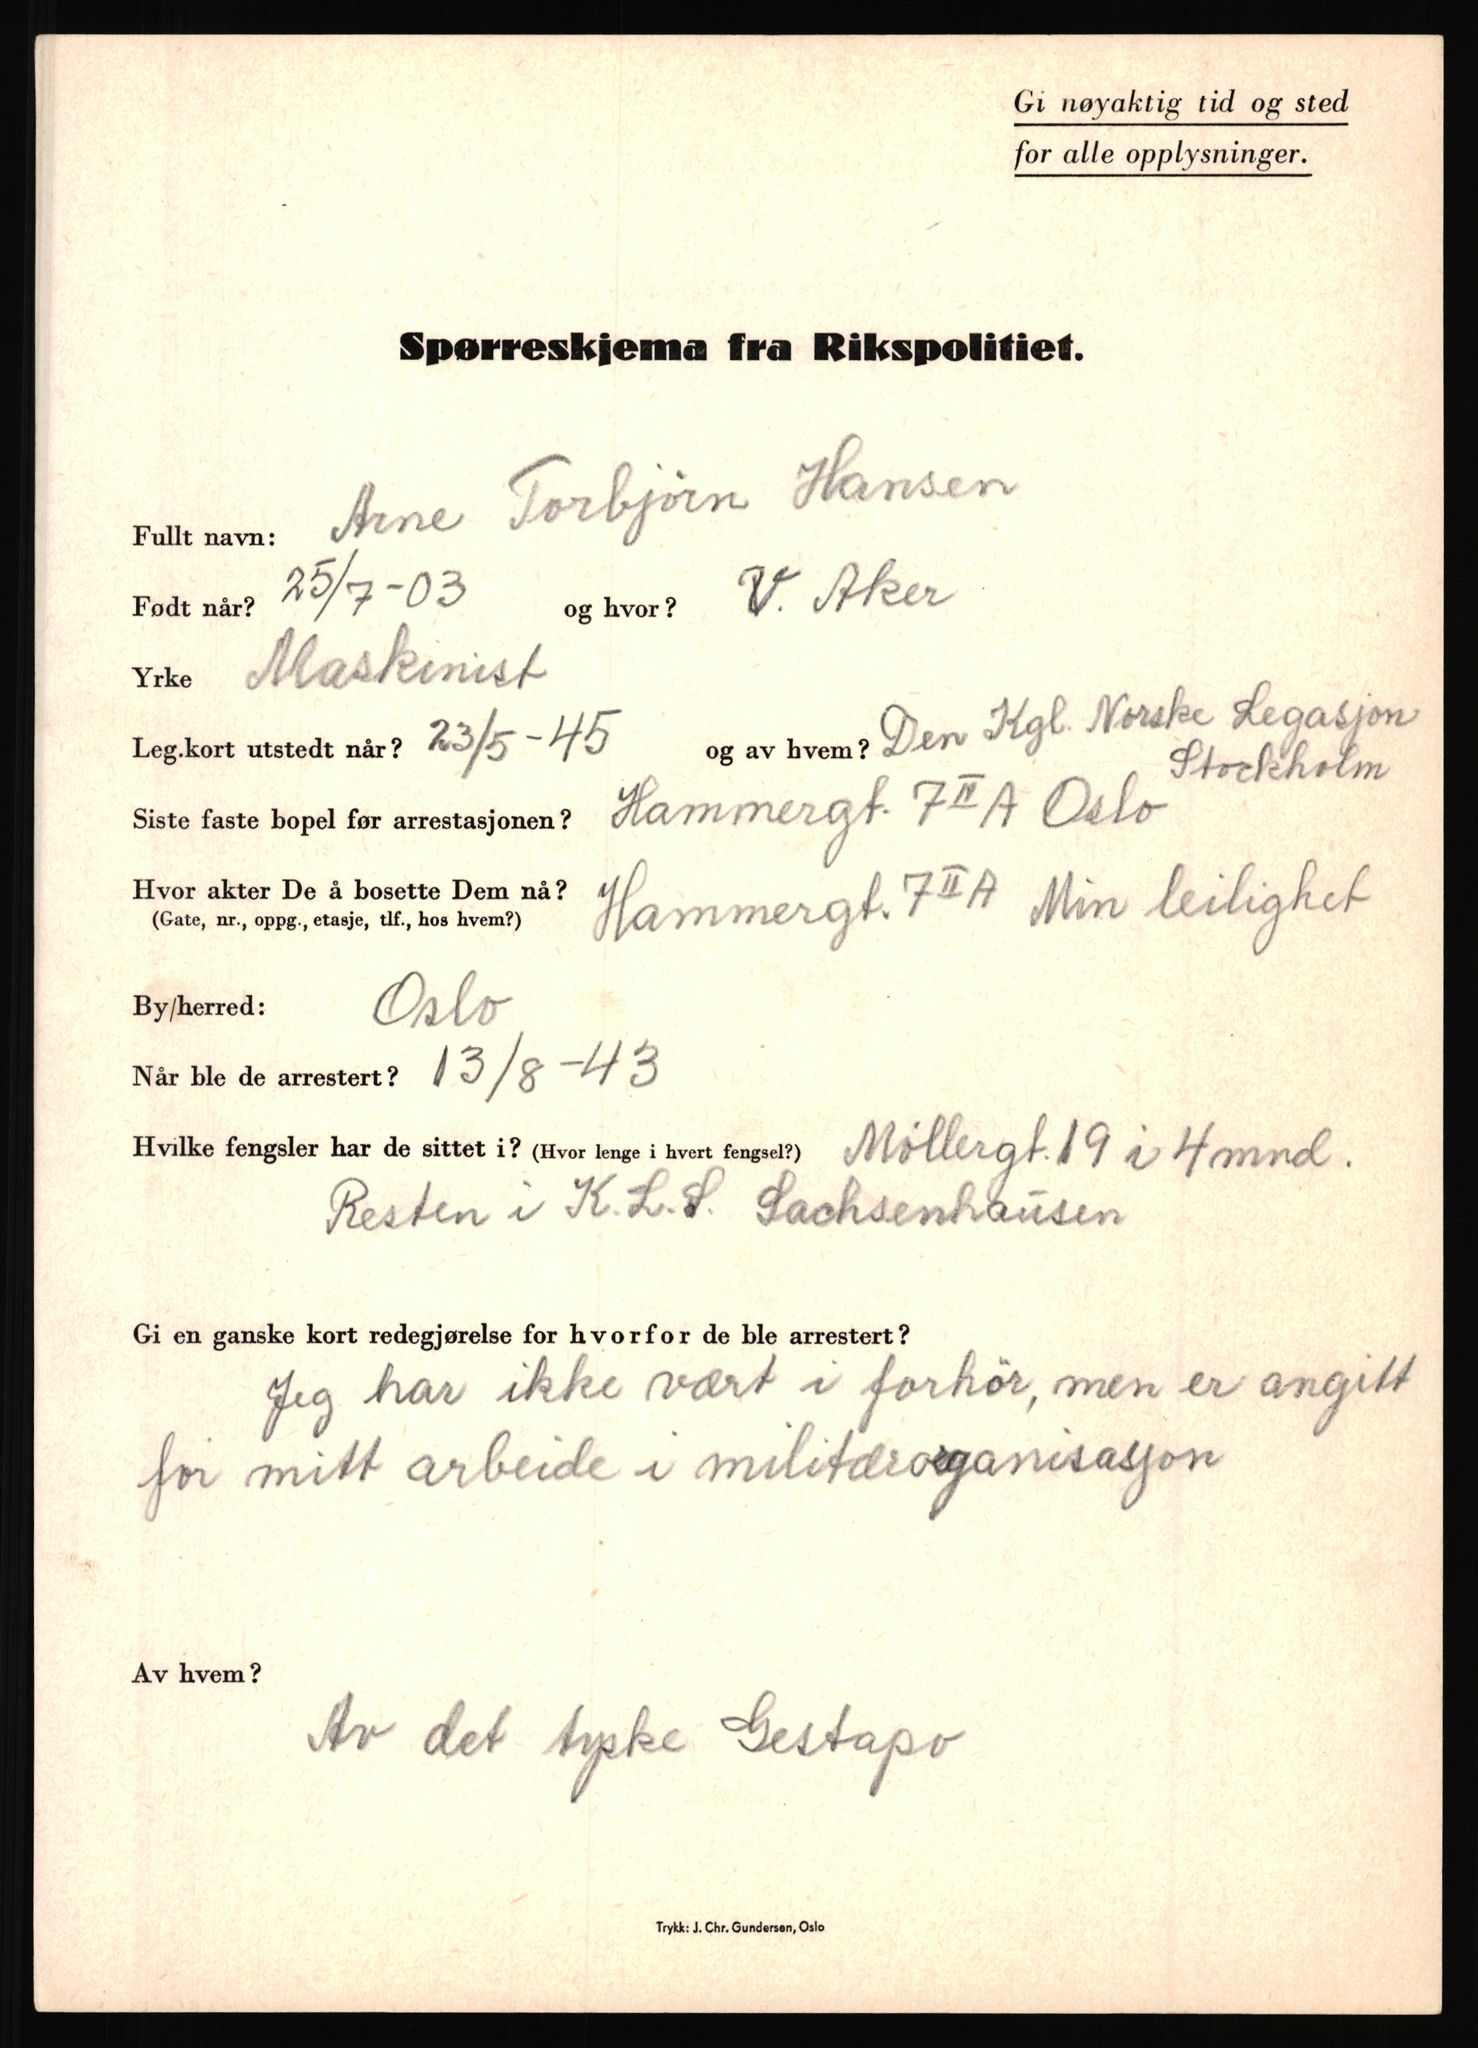 Gi nøyaktig tid og sted
for alle opplysninger.
Spørreskjema fra Rikspolitiet.
Fullt navn: Arne Torbjörn Hansen
Født når? 25/7-03 og hvor? V. Aker
Yrke Maskinist
Leg.kort utstedt når? 23/5-45 og av hvem? Den Kgl. Norske Legasjon
Stockholm
Siste faste bopel før arrestasjonen? Hammergt. 7 II A Oslo
Hvor akter De å bosette Dem nå? Hammergt. 7 II A Min leilighet
(Gate, nr., oppg., etasje, tlf., hos hvem?)
By/herred: Oslo
Når ble de arrestert? 13/8-43
Hvilke fengsler har de sittet i? (Hvor lenge i hvert fengsel?) Möllergt. 19 i 4 mnd.
Resten i K.L.S. Sachsenhausen
Gi en ganske kort redegjørelse for hvorfor de ble arrestert?
Jeg har ikke vært i forhör, men er angitt
for mitt arbeide i militærorganisasjon
Av hvem?
Av det tyske Gestapo
Trykk: J. Chr. Gundersen, Oslo